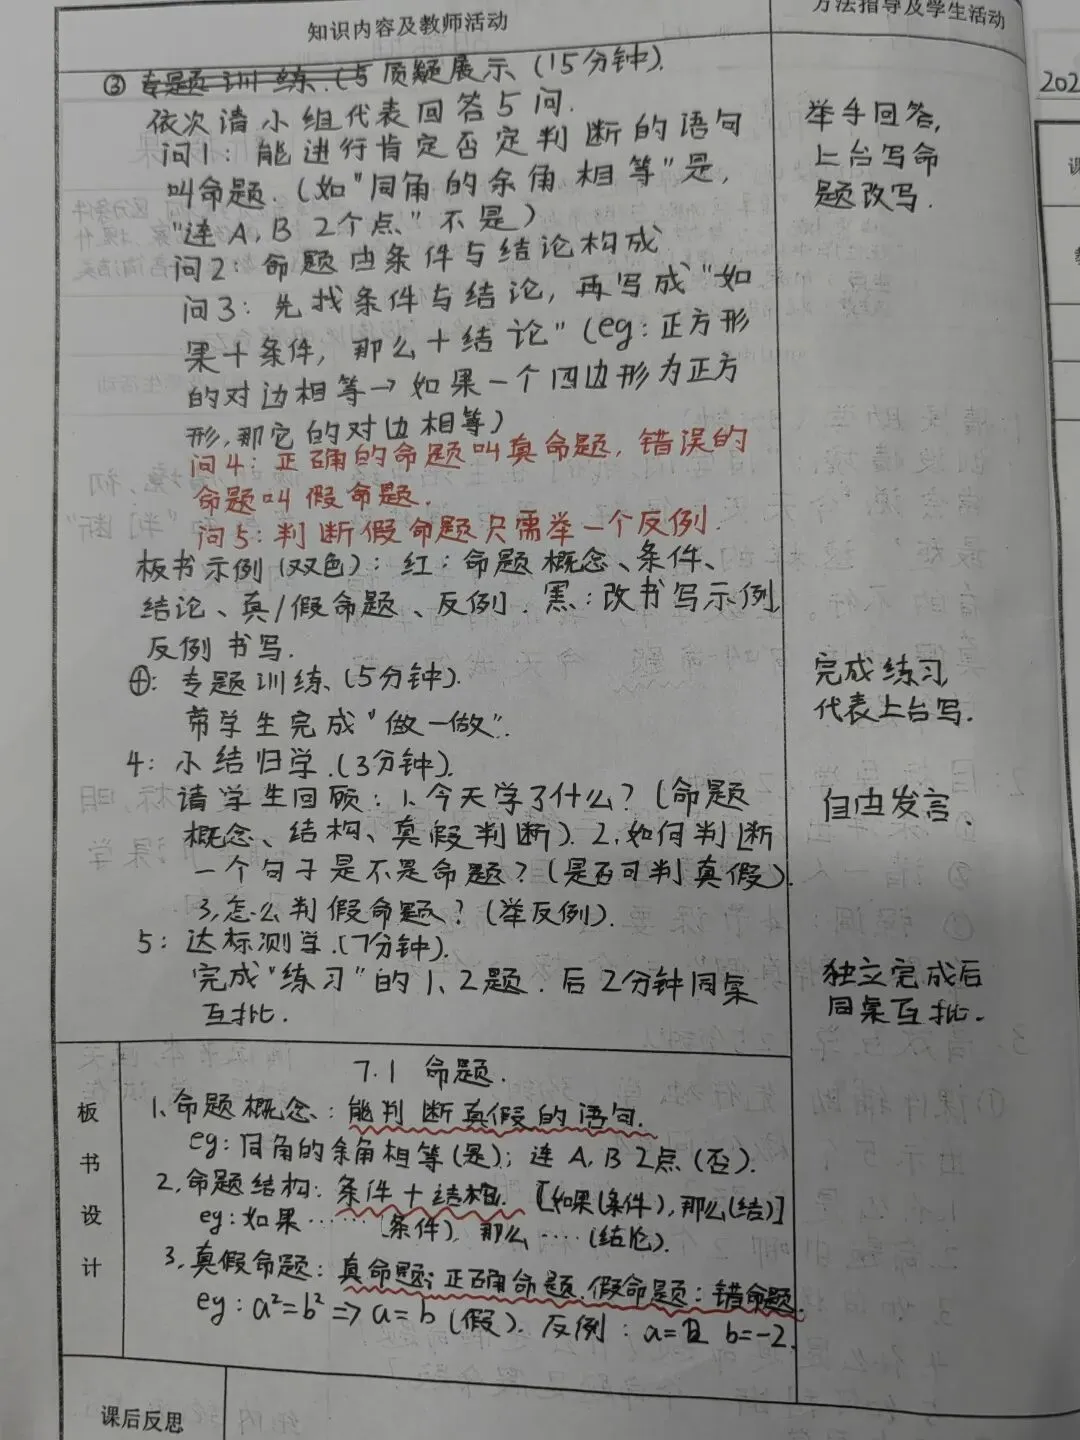 知识内容及教师活动
方法指导及学生活动
③ 专题训练.(5 质疑展示 (15分钟).
依次请小组代表回答5问.
问1: 能进行肯定否定判断的语句
叫命题. (如"同角的余角相等"是,
"连A,B 2个点" 不是)
问2: 命题由条件与结论构成
问3: 先找条件与结论, 再写成"如
果+条件, 那么+结论" (eg: 正方形
的对边相等→如果一个四边形为正方
形,那它的对边相等)
问4: 正确的命题叫真命题, 错误的
命题叫假命题.
问5: 判断假命题只需举一个反例.
板书示例(双色): 红: 命题概念、条件、
结论、真/假命题、反例. 黑: 改书写示例,
反例书写.
④: 专题训练、(5分钟).
带学生完成"做一做".
4: 小结归学.(3分钟).
请学生回顾: 1、今天学了什么? (命题
概念、结构、真假判断). 2.如何判断
一个句子是不是命题? (是否可判真假).
3,怎么判假命题? (举反例).
5: 达标测学.(7分钟).
完成"练习"的1、2题. 后2分钟同桌
互批.
举手回答,
上台写命
题改写.
完成练习,
代表上台写.
自由发言、
独立完成后
同桌互批.
板书设计
7.1 命题.
1、命题概念: 能判断真假的语句.
eg: 同角的余角相等(是); 连A,B 2点(否).
2,命题结构: 条件+结构. [如果(条件),那么(结)]
eg: 如果……(条件), 那么……(结论).
3,真假命题: 真命题: 正确命题. 假命题: 错命题.
eg: a²=b² => a=b (假). 反例: a=2 b=-2.
课后反思
202